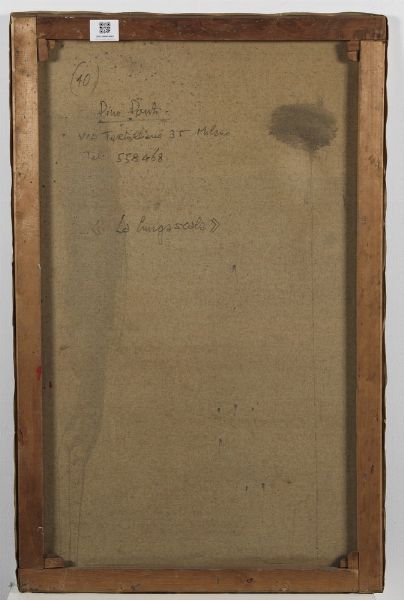 (40)
Pino Ponti.
Via Tertulliano 35 Milano
Tel. 558468
« La lunga scala »